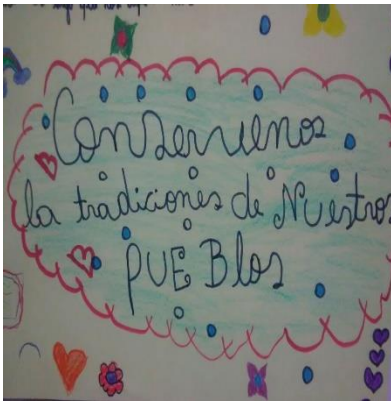 Conservenos
la tradiciones de Nuestros
PUEBlos